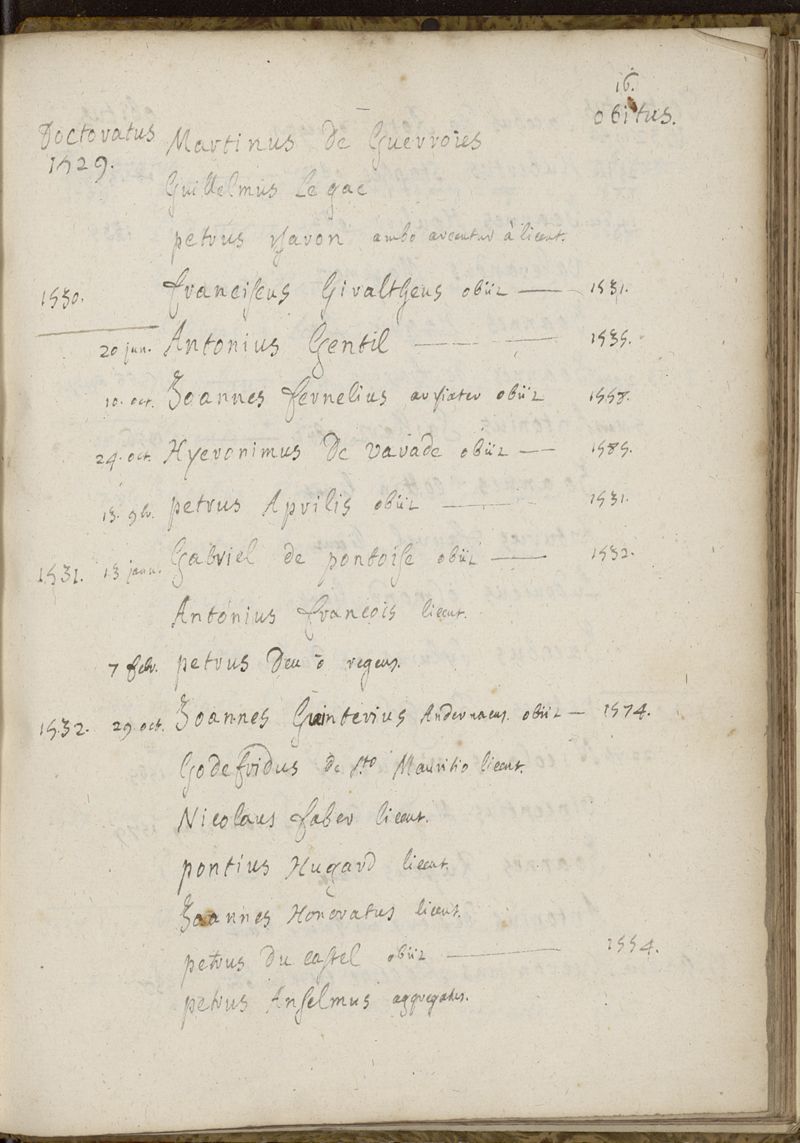 16.
Doctoratus obitus.
1529. Martinus De Guerroües
Guillelmus Le gac
petrus ambo arcentur à licent.
1530. franciscus Giraltheus obiit — 1531.
20 jun. Antonius Gentil — 1535.
10. oct. Joannes fernelius archiater obiit 1558.
24. oct. Hyeronimus De varade obiit — 1585.
13. 9br. petrus Aprilis obiit — 1531.
1531. 13 janu. Gabriel de pontoise obiit — 1532.
Antonius francois licent.
7 febr. petrus Deu ō regens.
1532. 29 oct. Joannes Guinterius Andernacus. obiit — 1574.
Godefridus de sto Mauritio licent.
Nicolaus faber licent.
pontius Hugard licent.
Joannes Honoratus licent.
petrus Du castel obiit — 1554.
petrus Anselmus aggregatus.